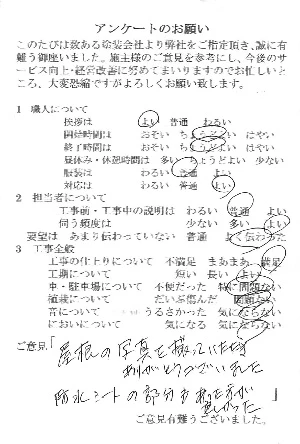 アンケートのお願い
このたびは数ある塗装会社より弊社をご指定頂き、誠に有
難う御座いました。施主様のご意見を参考にし、今後のサ
ービス向上・経営改善に努めてまいりますのでお忙しいと
ころ、大変恐縮ですがよろしくお願い致します。
1 職人について
挨拶は よい 普通 わるい
開始時間は おそい ちょうどいい はやい
終了時間は おそい ちょうどいい はやい
昼休み・休憩時間は 多い ちょうどよい 少ない
服装は わるい 普通 よい
対応は わるい 普通 よい
2 担当者について
工事前・工事中の説明は わるい 普通 よい
伺う頻度は 少ない 多い よい
要望は あまり伝わっていない 普通 よく伝わった
3 工事全般
工事の仕上りについて 不満足 まあまあ 満足
工期について 短い 長い よい
車・駐車場について 不便だった 特に問題ない
植栽について だいぶ傷んだ 問題ない
音について うるさかった 気にならない
においについて 気になる 気にならない
ご意見「屋根の写真を撮っていただき
ありがとうございました
防水シートの部分も
」
ご意見有難うございました。